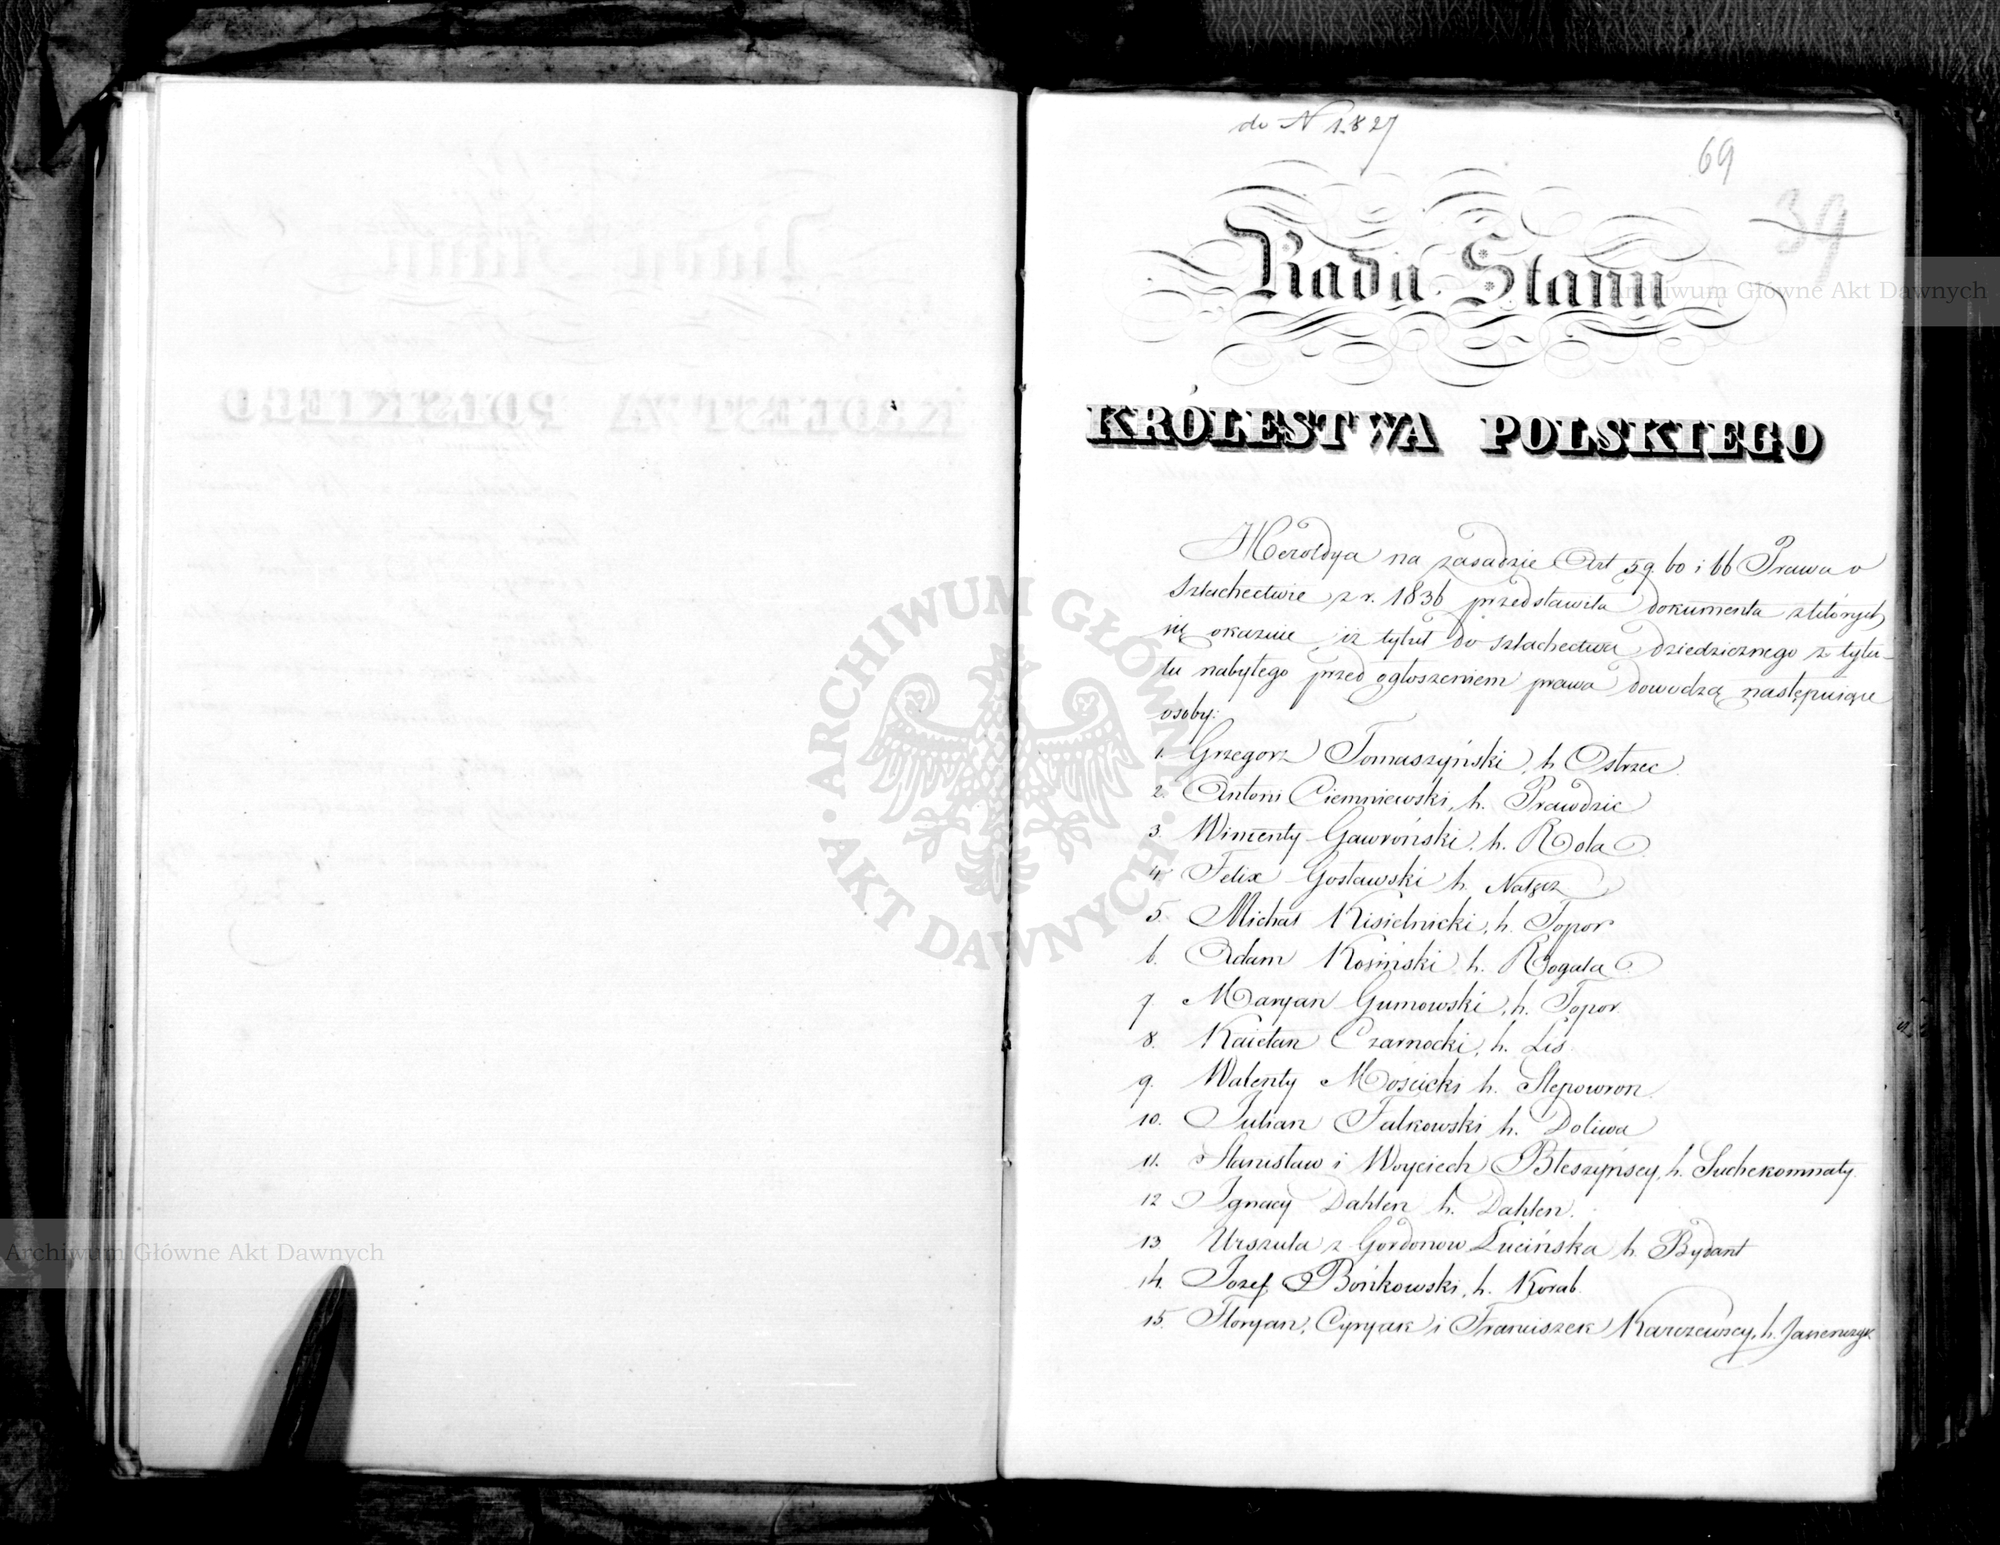 do N 1827
69
39
Rada Stanu
KRÓLESTWA POLSKIEGO
Heroldya na zasadzie Art 59 60 i 66 Prawa o
Szlachectwie z r. 1836 przedstawiła dokumenta z których
się okazuie iż tytuł do szlachectwa dziedzicznego z tytu-
łu nabytego przed ogłoszeniem prawa dowodzą następuiące
osoby:
1. Grzegorz Tomaszyński, h. Ostrzec.
2. Antoni Ciemniewski, h. Prawdzic
3. Wincenty Gawroński, h. Rola
4. Felix Gosławski h. Nałęcz
5. Michał Kisielnicki, h. Topor
6. Adam Kosiński h. Rogala
7. Maryan Gumowski, h. Topor
8. Kaietan Czarnocki, h. Lis
9. Walenty Mościcki h. Slepowron
10. Julian Falkowski h. Doliwa
11. Stanisław i Woyciech Błeszyńscy, h. Suchekomnaty
12 Ignacy Dahlen h. Dahlen.
13 Urszula z Gordonow Łucińska h. Bydant
14. Jozef Bońkowski, h. Korab
15. Floryan, Cyryak i Franciszek Karczewscy, h. Jasienczyk
Archiwum Główne Akt Dawnych
ARCHIWUM GŁÓWNE AKT DAWNYCH
Archiwum Główne Akt Dawnych